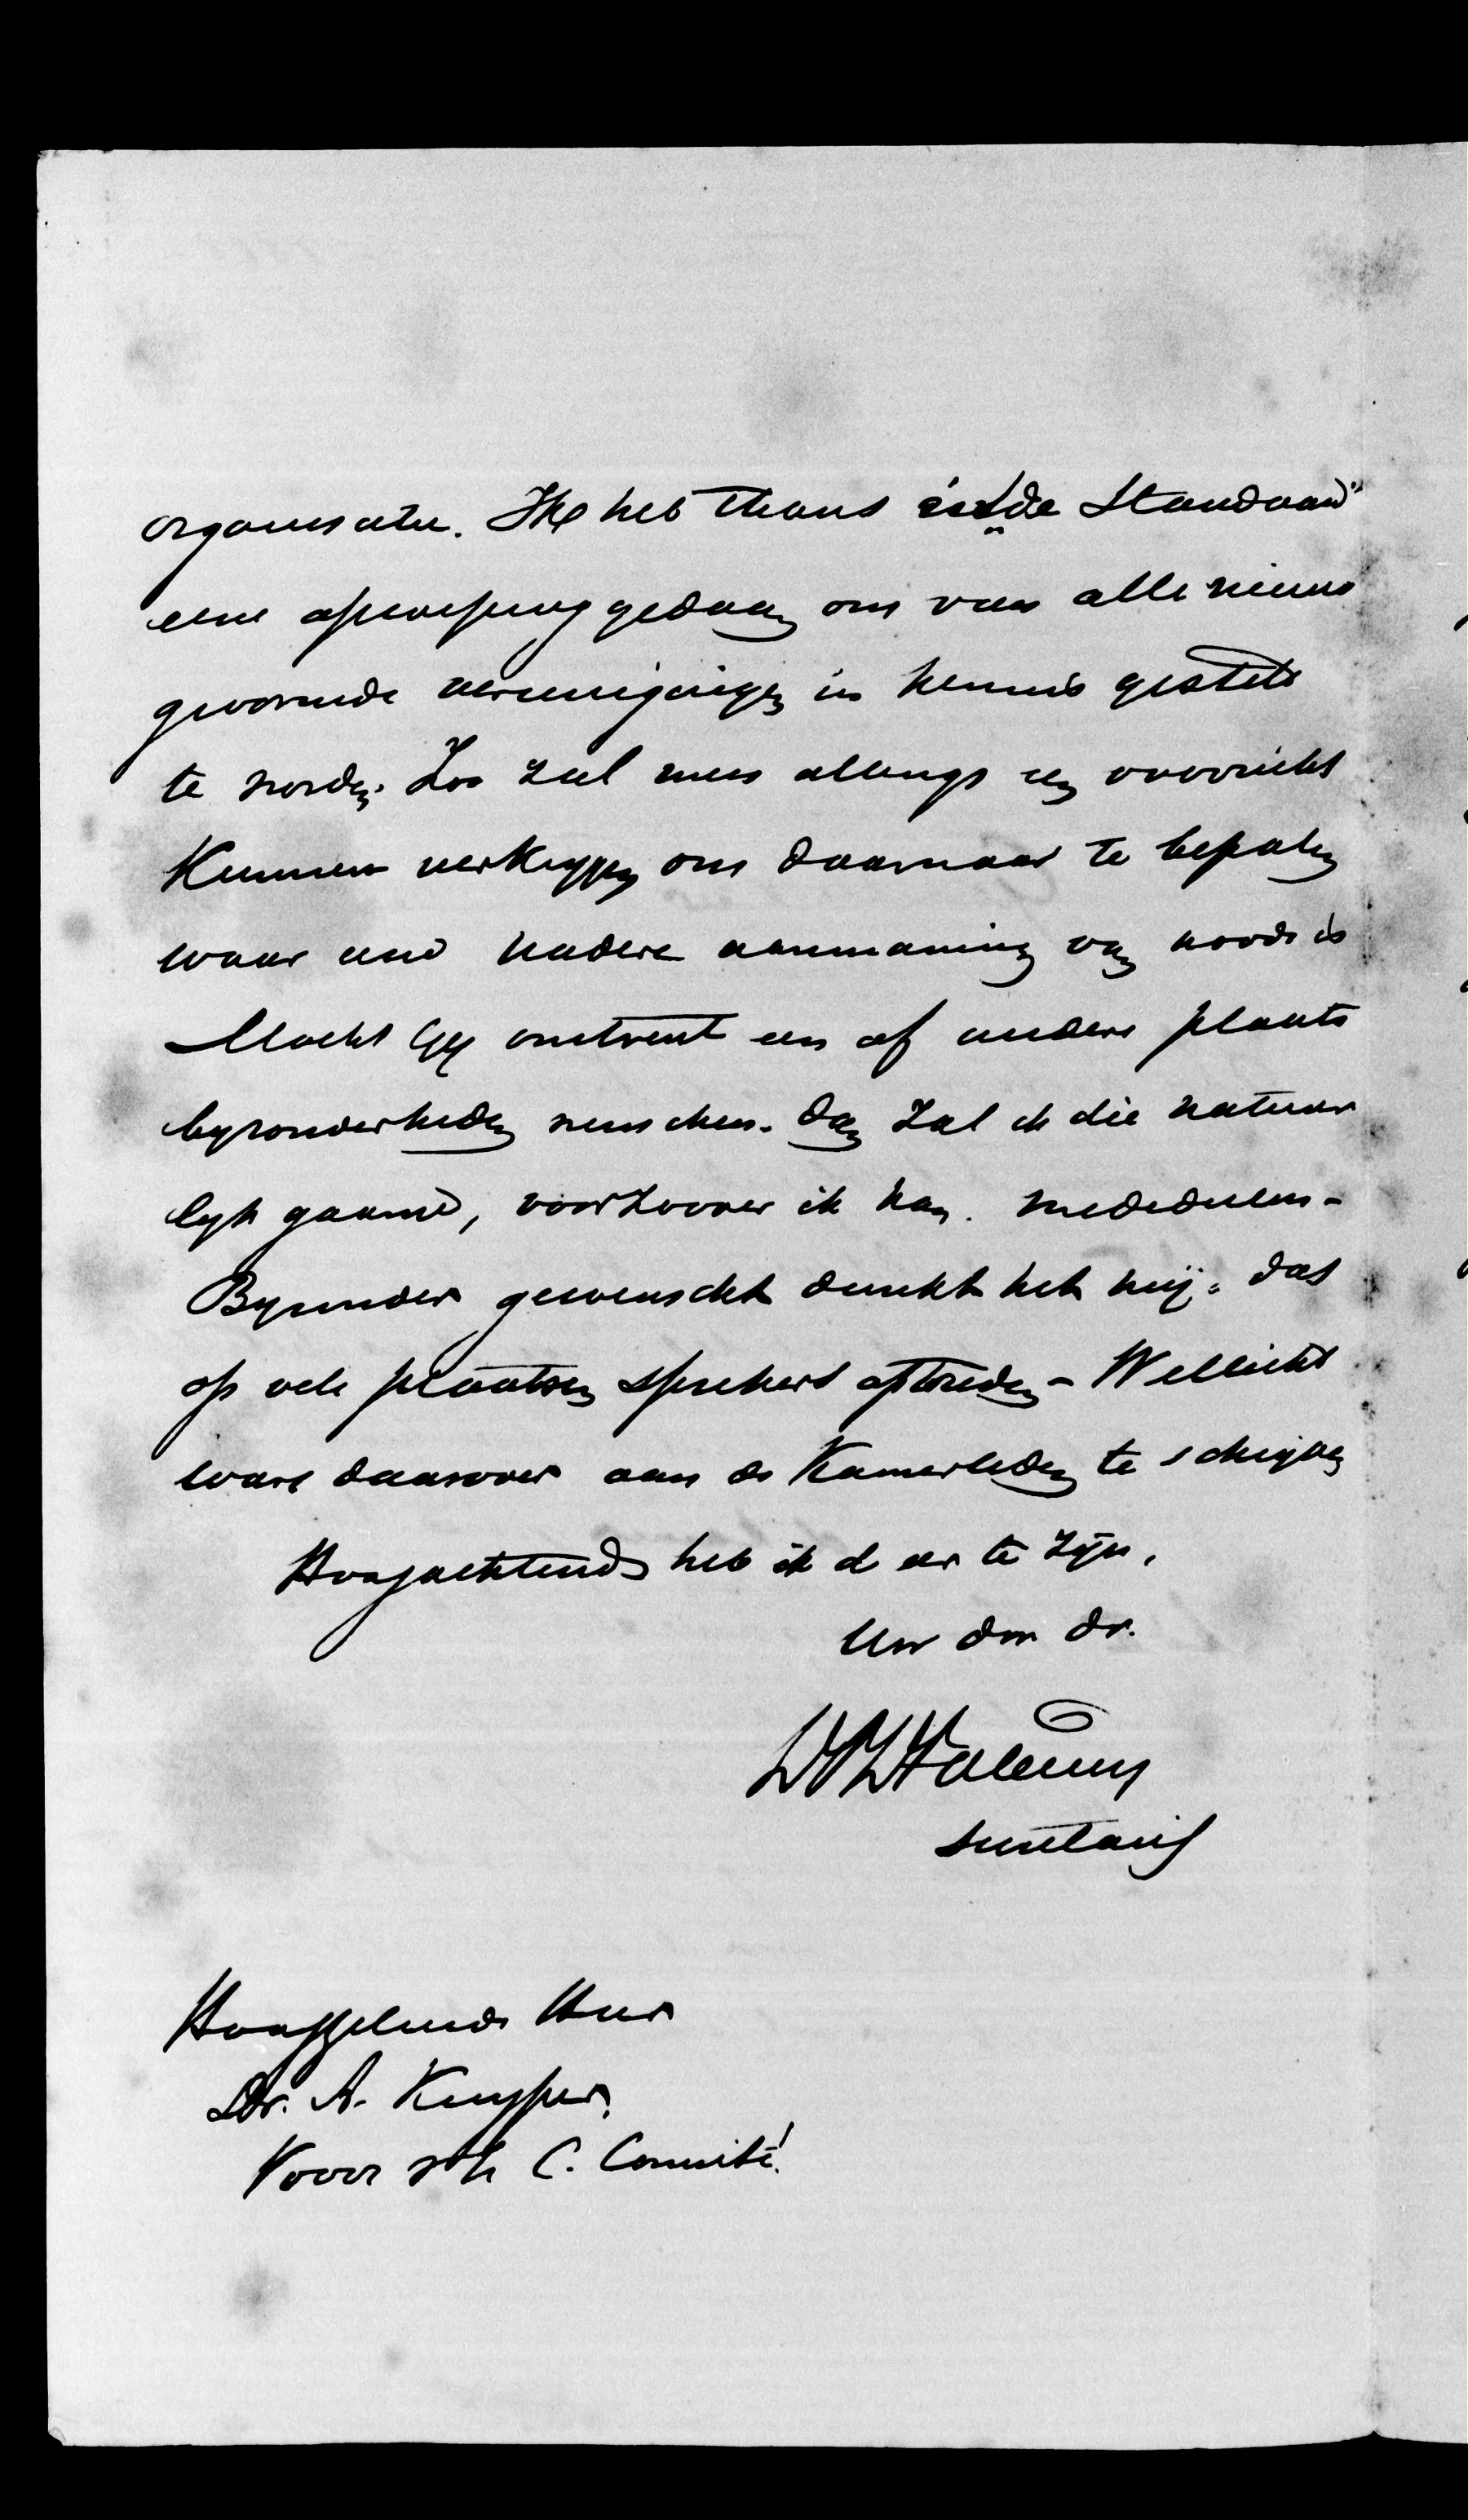 organisatie. Ik heb thans in „de Standaard"
eene oproeping gedaan om van alle nieuw
gevormde vereenigingen in kennis gesteld
te worden. Zoo zal men allengs een overzicht
kunnen verkrygen om daarnaar te bepalen
waar eene nadere aanmaning van noode is
Mocht Gy omtrent een of andere plaats
byzonderheden wenschen. dan zal ik die natuur
lyk gaarne, voorzoover ik kan. mededeelen -
Byzonder gewenscht dunkt het mij, dat
op vele plaatsen sprekers optreden - Wellicht
ware daarover aan de Kamerleden te schryven
Hoogachtend heb ik d eer te zijn,
Uw dw dr.
secretaris
HoogGeleerde Heer
Dr. A. Kuyper.
Voorz v/h C. Comité.